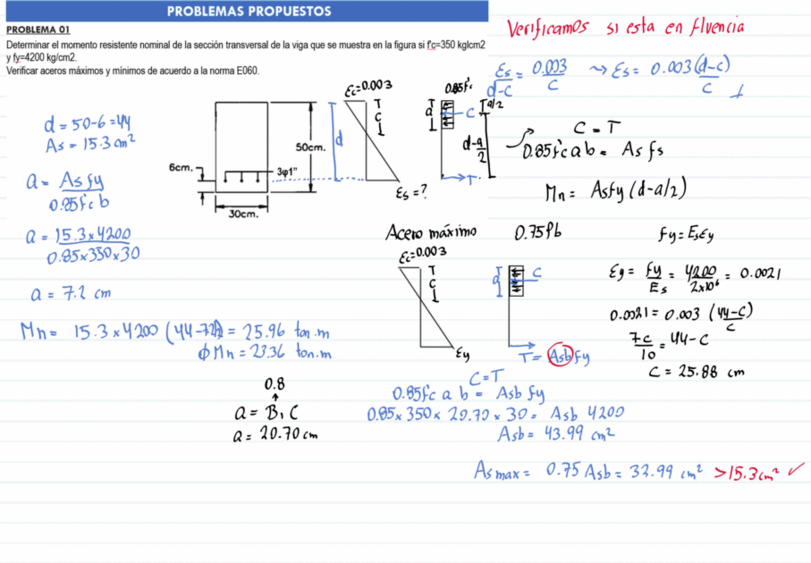 PROBLEMAS PROPUESTOS
PROBLEMA 01
Determinar el momento resistente nominal de la sección transversal de la viga que se muestra en la figura si f'c=350 kglcm2
y fy=4200 kg/cm2.
Verificar aceros máximos y mínimos de acuerdo a la norma E060.
Verificamos si esta en fluencia
Es/d-c = 0.003/c ⇝ Es = 0.003(d-c)/c
d = 50-6 = 44
As = 15.3 cm²
a = As fy / 0.85f'c b
a = 15.3x4200 / 0.85x350x30
a = 7.2 cm
50cm.
6cm.
3φ1"
30cm.
d
Ec=0.003
c
Es = ?
0.85f'c
a
C
a/2
d-a/2
T
C = T
0.85f'c a b = As fs
Mn = Asfy (d-a/2)
Mn = 15.3 x 4200 (44-7.2/2) = 25.96 ton.m
ϕ Mn = 23.36 ton.m
Acero máximo 0.75ρb
Ec=0.003
c
Ey
a
C
T = Asb fy
fy = Es Ey
Ey = fy/Es = 4200/2x10⁶ = 0.0021
0.0021 = 0.003 (44-C)/c
7c/10 = 44 - C
C = 25.88 cm
0.8
a = B1 C
a = 20.70 cm
C = T
0.85f'c a b = Asb fy
0.85 x 350 x 20.70 x 30 = Asb 4200
Asb = 43.99 cm²
As max = 0.75 Asb = 32.99 cm² >15.3cm² ✓